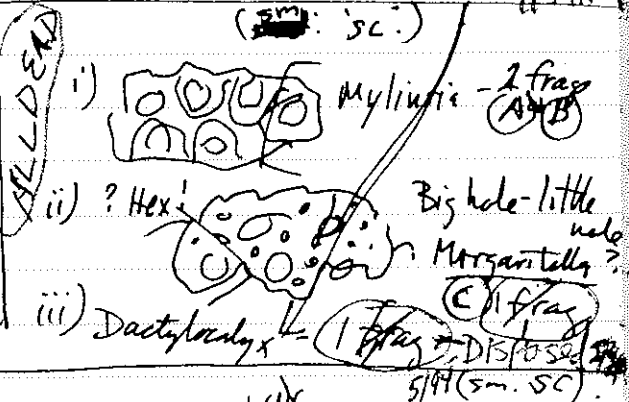 (sm: 'SC'.)
ALL DEAD
i) Myliusia - 2 frags
A + B
ii) ? Hex! Big hole-little
hole
Margaritella ?
C 1 frag
iii) Dactylocalyx = 1 frag - DISPOSED
5/94 (sm. SC)